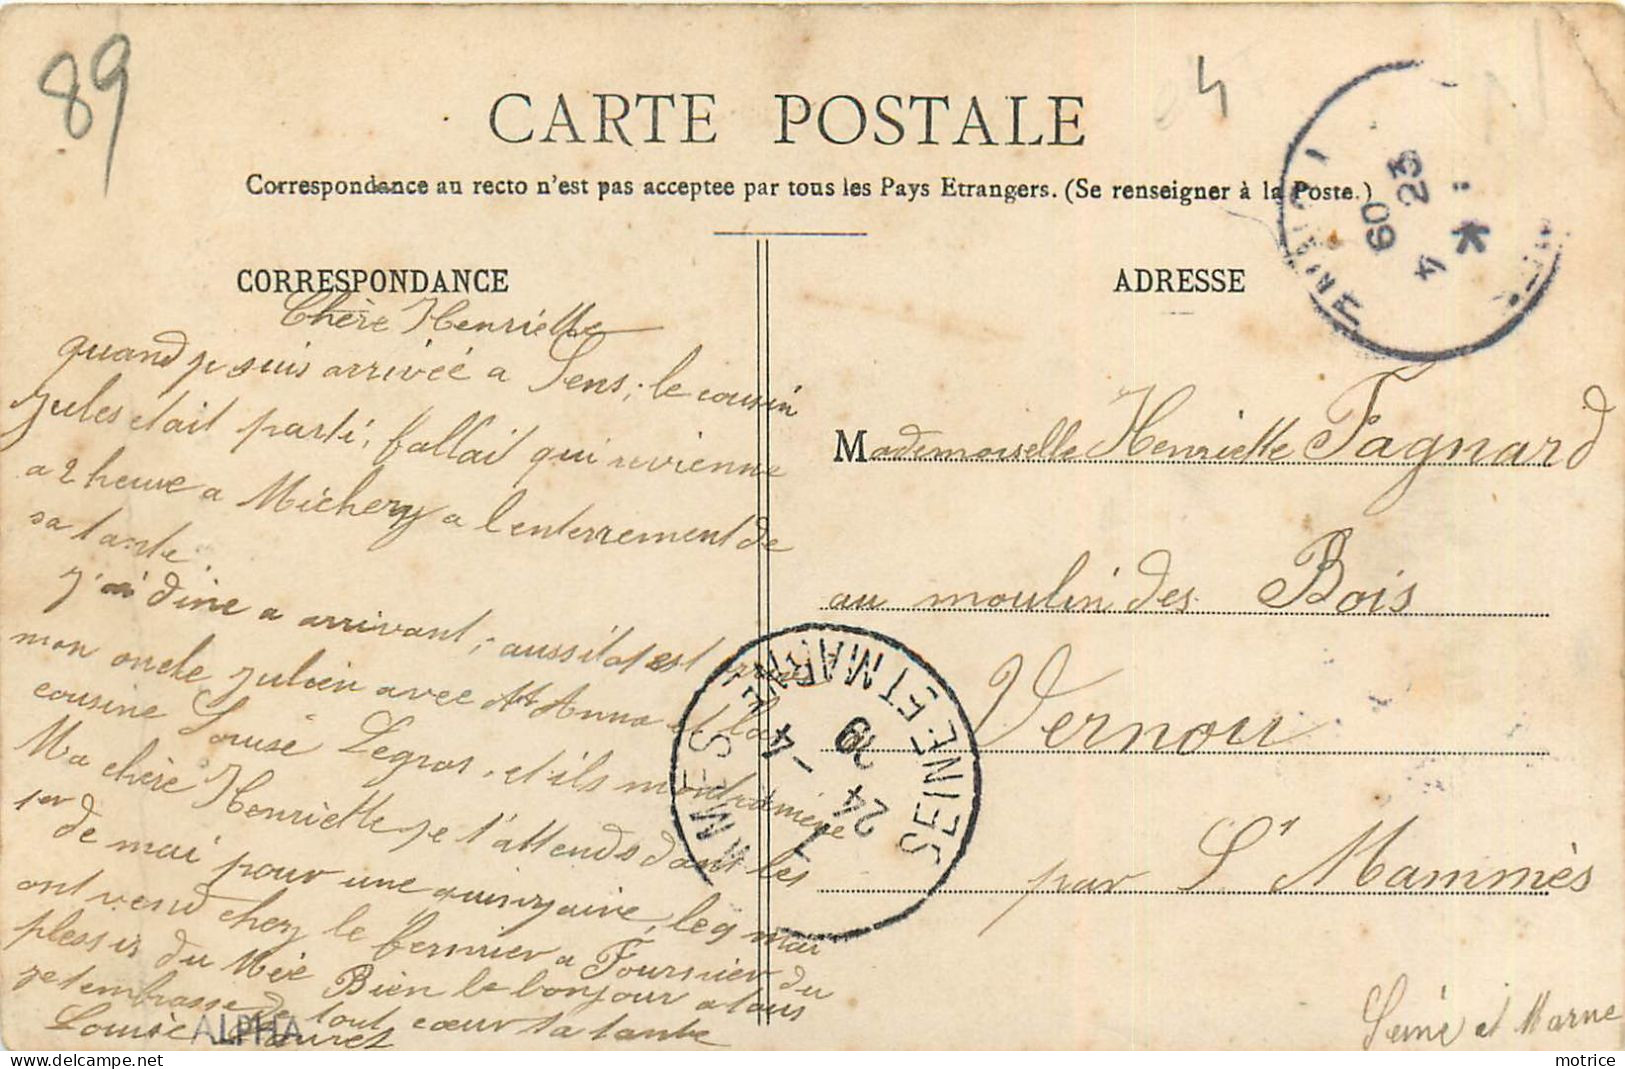 89
4
CARTE POSTALE
Correspondance au recto n'est pas acceptee par tous les Pays Etrangers. (Se renseigner à la Poste.)
CORRESPONDANCE
Chère Henriette
quand je suis arrivée a Sens, le cousin
Jules etait parti, fallait qui revienne
a 2 heure a Michery a l'enterrement de
sa tante.
j'ai diné a arrivant, aussitot est
mon oncle Julien avec Anna et la
cousine Louise Legros, et ils
Ma chère Henriette je t'attends dant les
1er de mai pour une quinzaine, les 9 mai
ont vend chez le fermier a Fournier du
plessis du Mée Bien le bonjour a tous
je t'embrasse de tout cœur ta tante
Louise
ADRESSE
Mademoiselle Henriette Fagnard
au moulin des Bois
Vernou
par St Mammès
Seine et Marne
23
4
09
SEINE ET MARNE
24 - 4
09
ALPHA
motrice